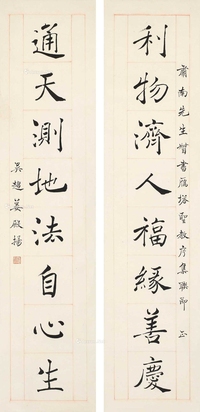 利物濟人福緣善慶
肅南先生督書雁塔聖教序集聯即正
通天測地法自心生
吳趨姜殿揚